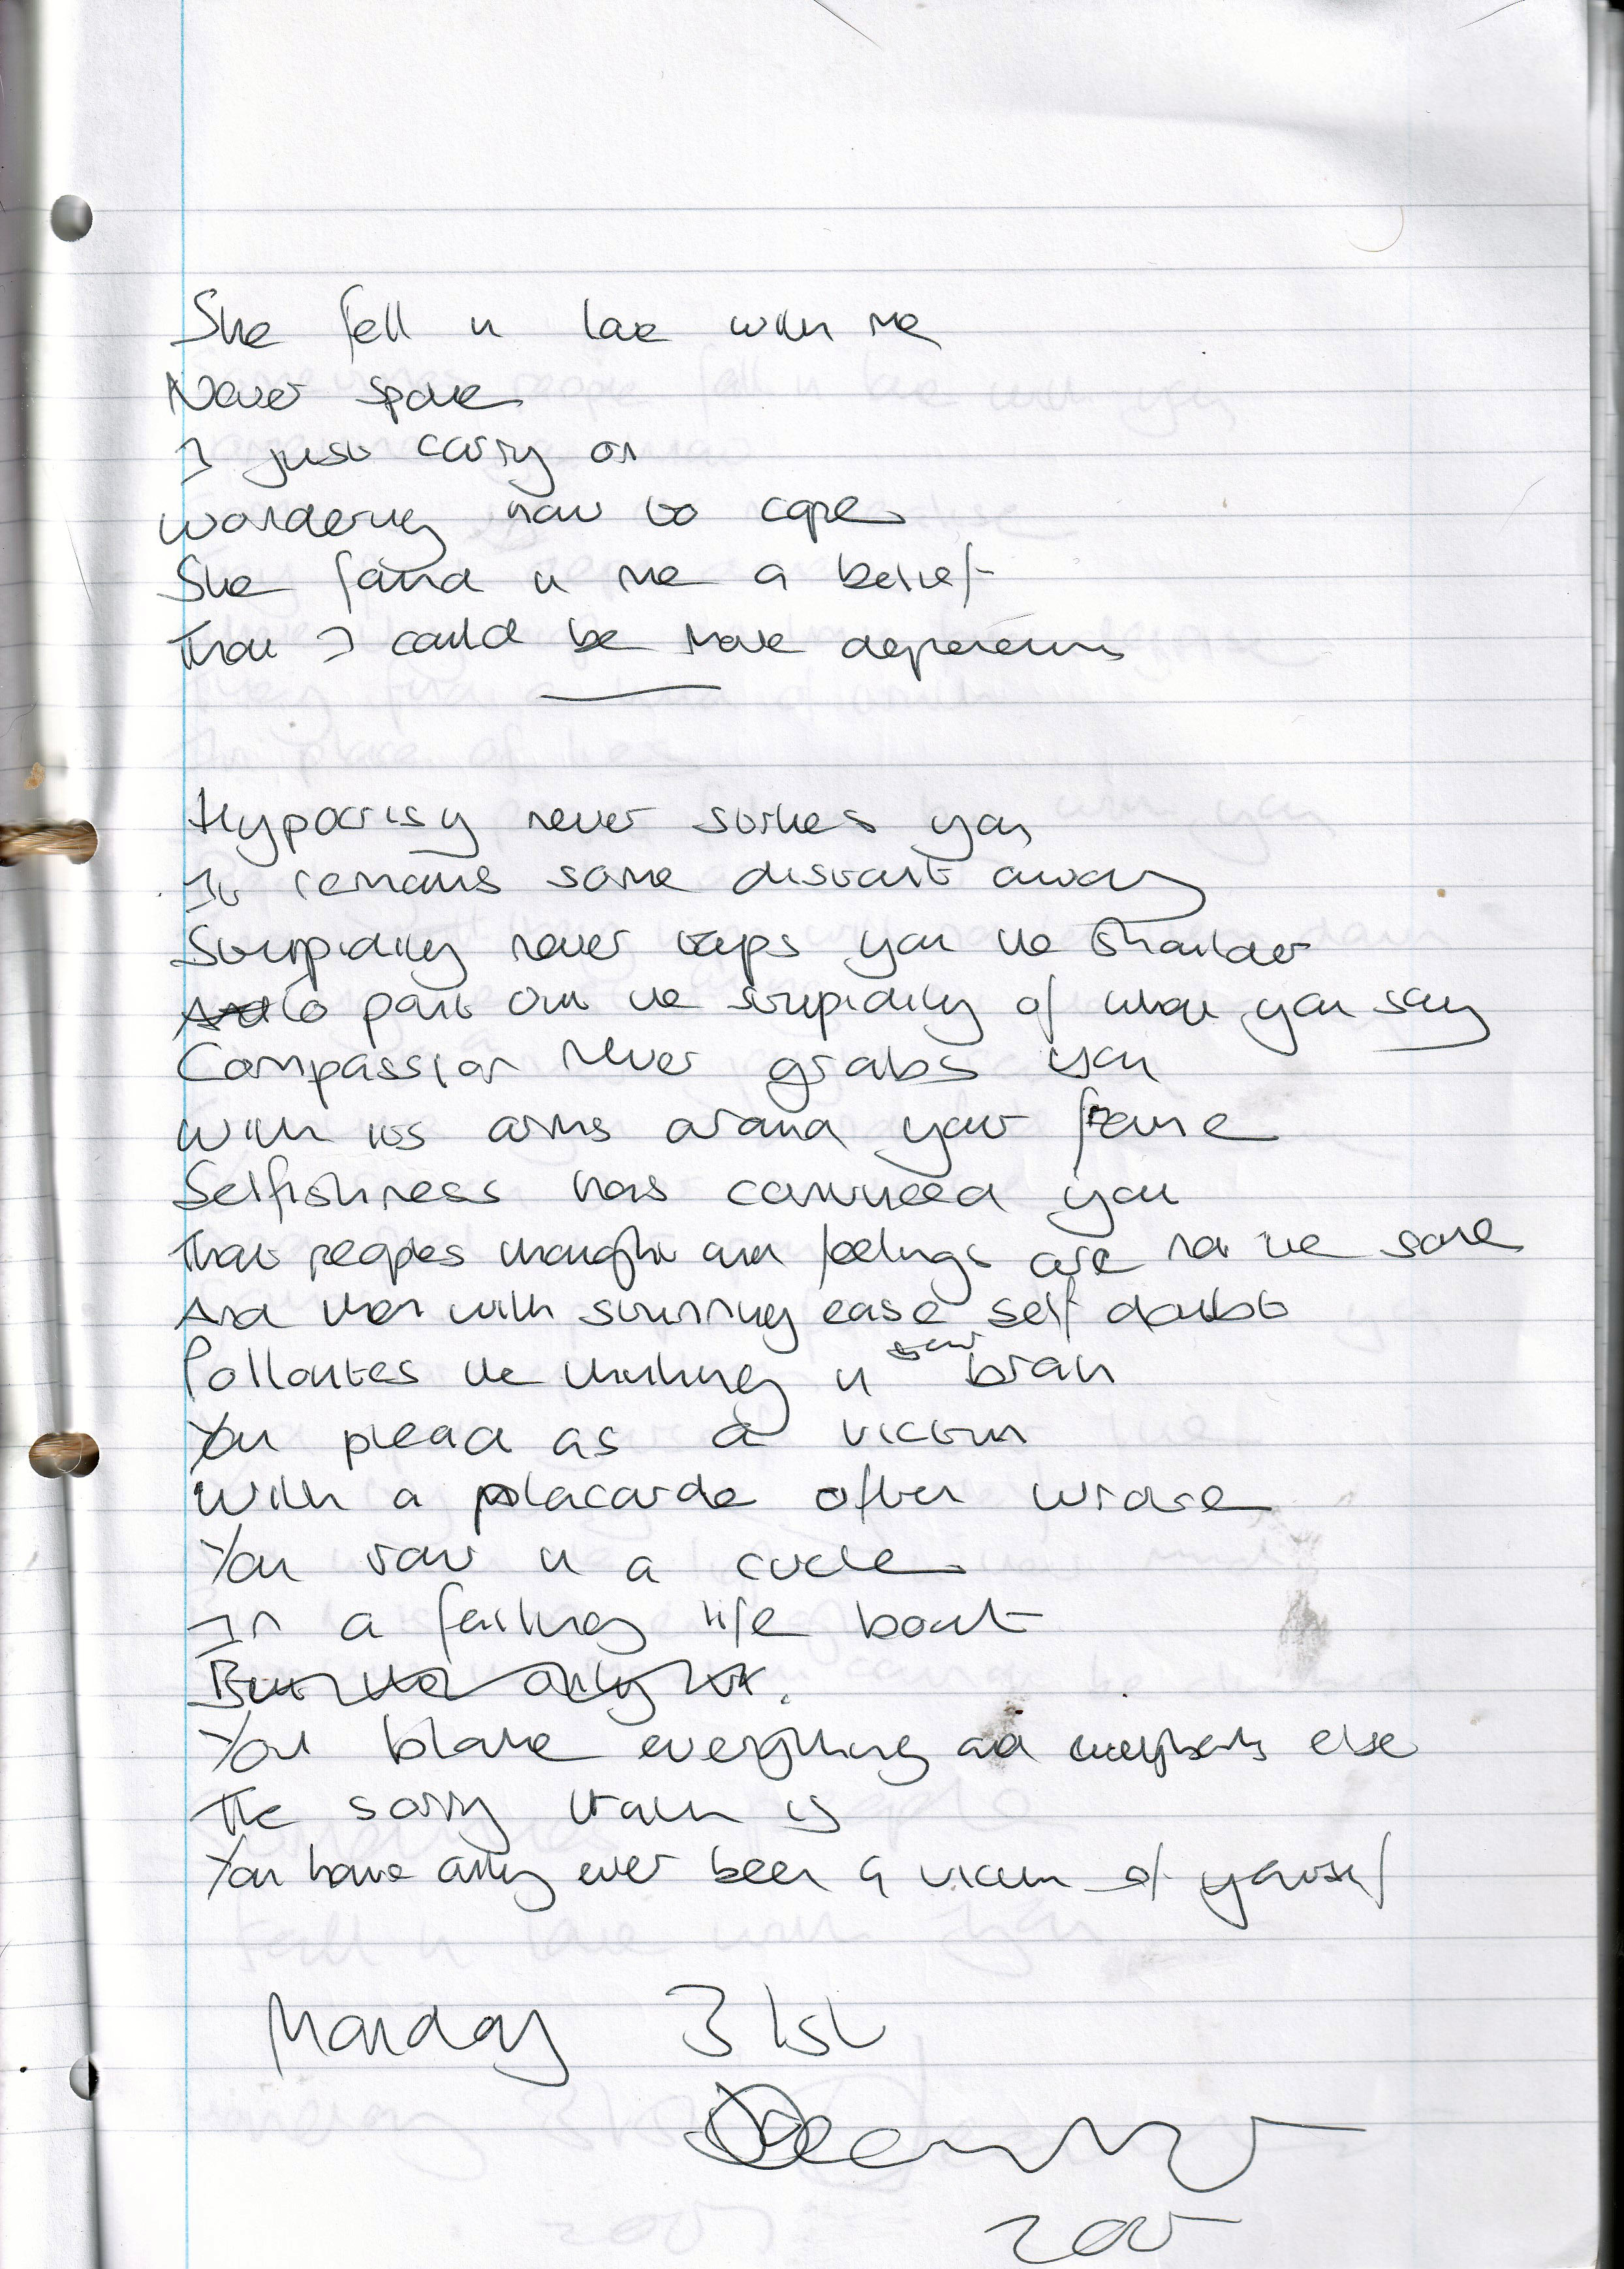 She fell in love with me
Never spoke
I just carry on
wondering how to cope
She found in me a belief
That I could be more
Hypocrisy never strikes you
It remains some distant away
Stupidity never taps you the shoulder
to point out the stupidity of what you say
Compassion never grabs you
With its arms around your frame
Selfishness has convinced you
That peoples thought and feelings are not the same
And then with stunning ease self doubt
Pollontes the thinking in your brain
You plead as a victim
With a placarde often wrote
You row in a circle
In a failing life boat
You blame everything and everybody else
The sorry truth is
You have only ever been a victim of yourself
Monday 31st
December
2005